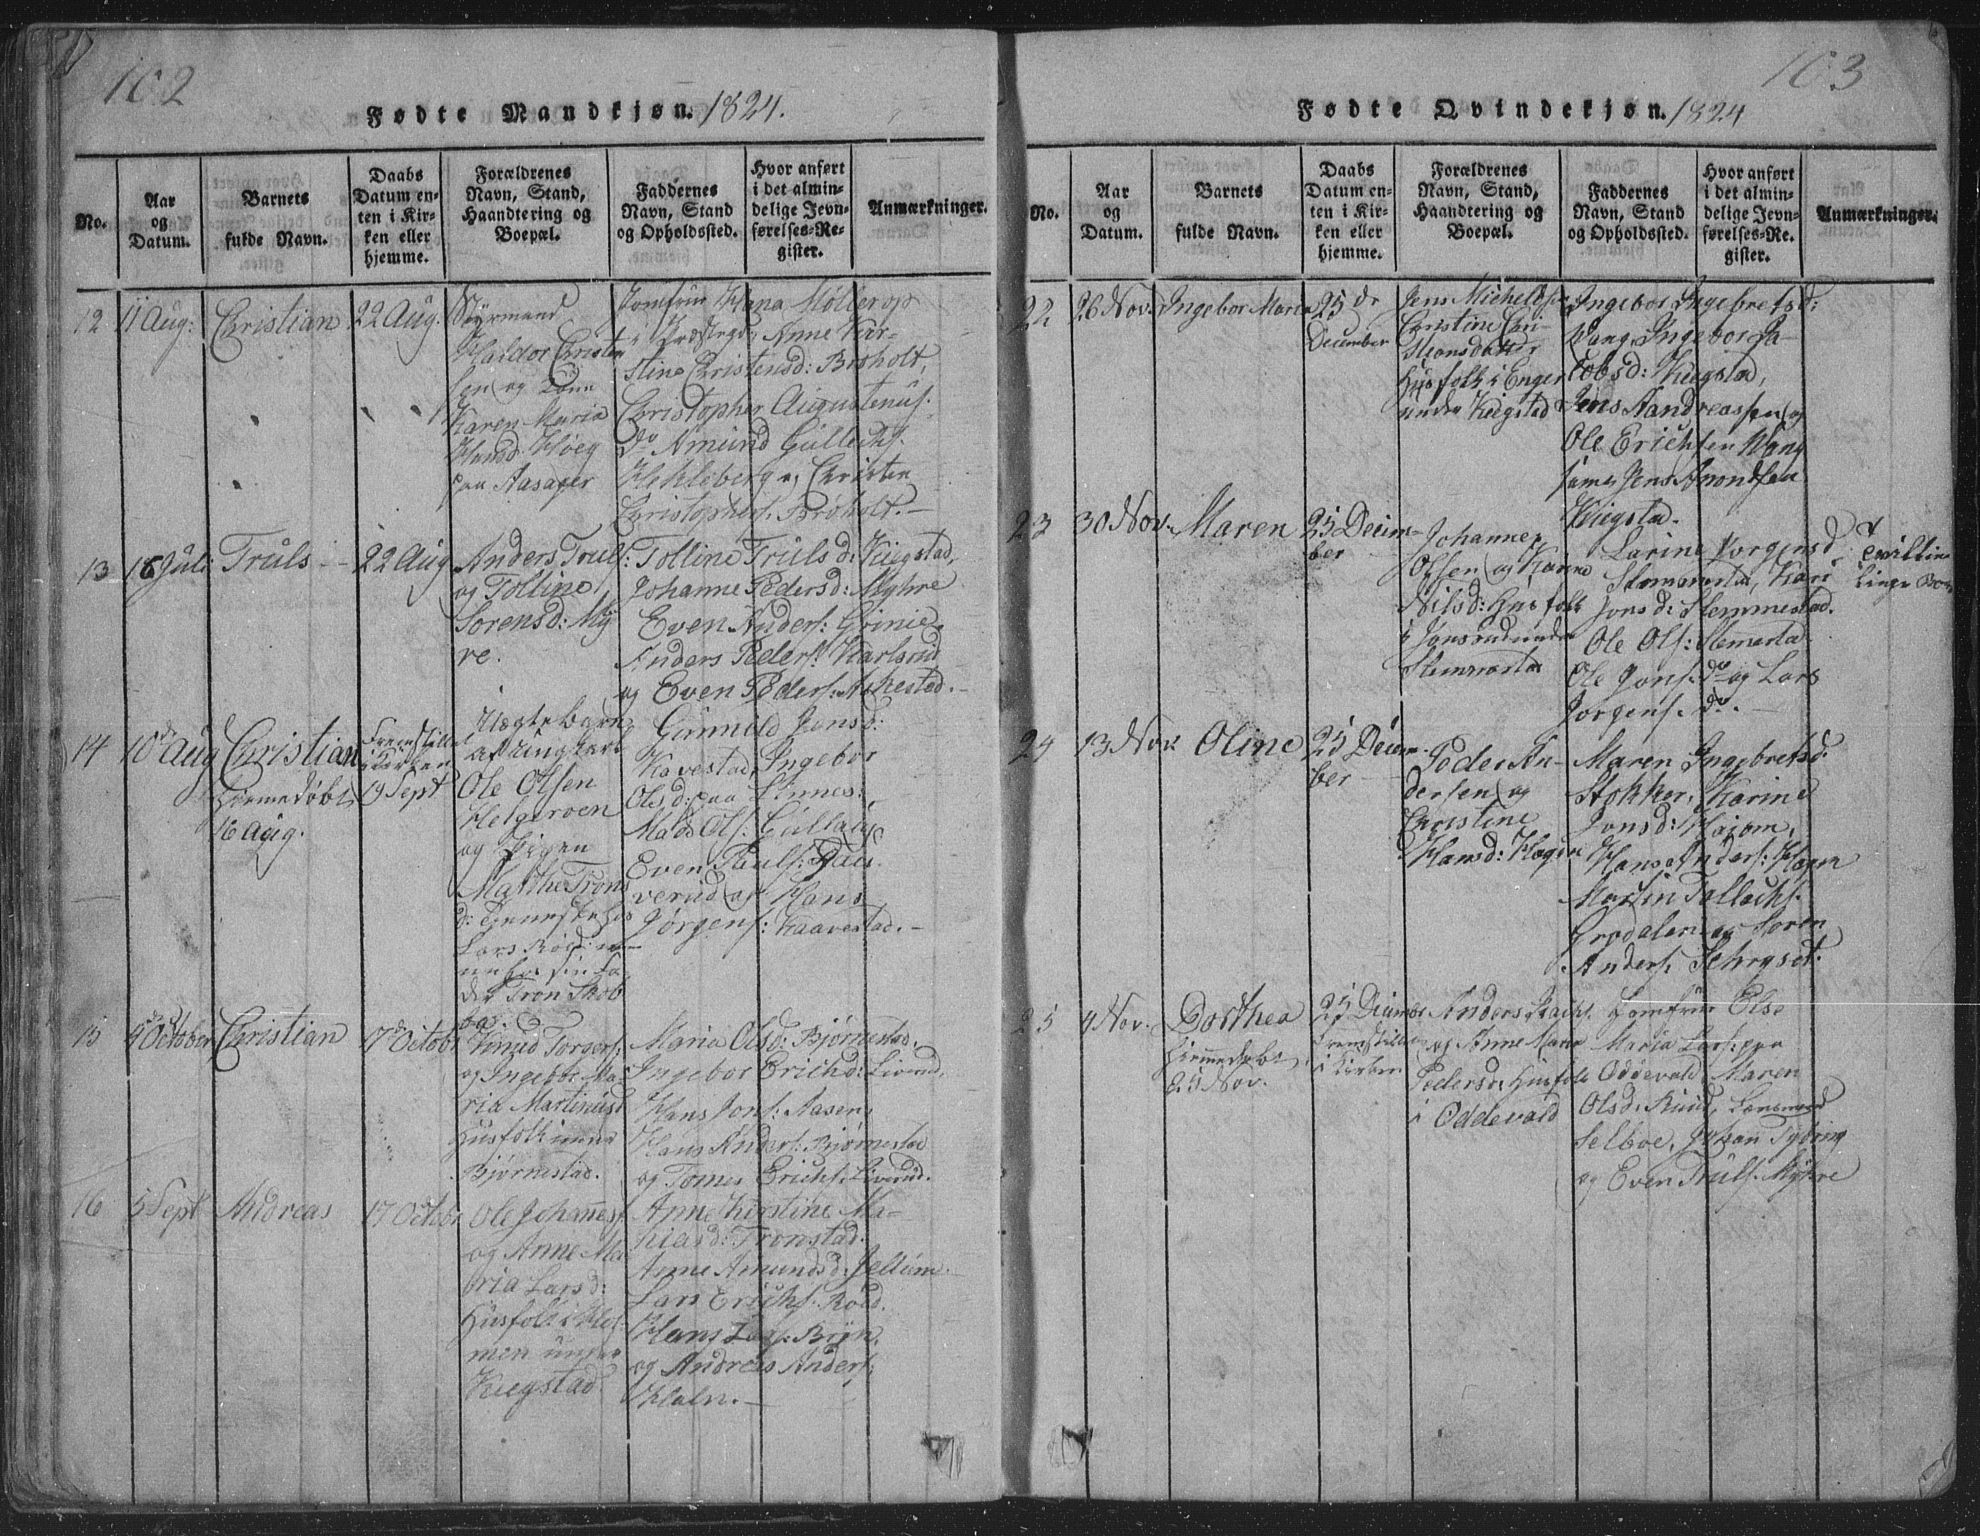 102
Fødte Mandkjøn. 1824.
No.
Aar
og
Datum.
Barnets
fulde Navn.
Daabs
Datum en-
ten i Kir-
ken eller
hjemme.
Forældrenes
Navn, Stand,
Haandtering og
Boepæl.
Faddernes
Navn, Stand
og Opholdssted.
Hvor anført
i det almin-
delige Jevn-
førelses-Re-
gister.
Anmærkninger.
12
11 Aug:
Christian
22 Aug.
Styrmand
Haldor Christen
sen og Kone
Karen Maria
Høeg
paa Aasager
Jomfrue Hana Møllerop
i Anne Kir-
stine Christensd: Broholt,
Christopher Augustinus.
do Amund Gullechs.
Hekleberg og Christen
Christophers. Broholt.-
13
16 Juli
Truls -
22 Aug
Anders Truls:
og Tolline
Sorensd: My
re.
Tolline Trulsd: Kiegstad,
Johanne Pedersd: Myhre
Even Anders: Grinie
Anders Peders: Karlsrud
og Even Peders: Askestad.-
14
10de Aug
Christian
Hiemedøbt
16 Aug.
Fremstillet
i Kirken
19 Sept
Uægte barn
af Ungkarl
Ole Olsen
Helgeroen
og Pigen
Marthe Trons
d: Tieneste hos
Lars
sin fa
der Tron
Gunnild Jensd:
Kavestad, Ingebor
Olsd: paa Linnes:
Mads Ols: Gullaug
Even Pauls:
verud og Hans
Jørgens: Kaavestad.-
15
4de October
Christian
17de Octobr
Knud Torgers:
og Ingebor Ma-
ria Martinusd
Husfolk
Bjørnestad.
Maria Olsd: Bjørnestad.
Ingebor Erichd: Liverud.
Hans Jons: Aasen,
Hans Anders: Bjørnestad
og Tomes Erichs. Liverud.
16
5 Sept
Andreas
17 Octobr
Ole Johannes.
og Anne Ma
ria Larsd:
Husfolk i Hol
men under
Kiegstad
Anne Kirstine Ma-
thiasd: Tronstad.
Anne Amundsd: Jellum.-
Lars Erichs. Roed.
Hans Lars: Bryn,
og Andreas Anders:
Holm.-
103
Fødte Qvindekjøn. 1824
No.
Aar
og
Datum.
Barnets
fulde Navn.
Daabs
Datum en-
ten i Kir-
ken eller
hjemme.
Forældrenes
Navn, Stand,
Haandtering og
Boepæl.
Faddernes
Navn, Stand
og Opholdssted.
Hvor anført
i det almin-
delige Jevn-
førelses-Re-
gister.
Anmærkninger.
22
26 Nov.
Ingebor Maria
25 de
December
Jens Michels.
Christine Chri-
stiansdatter
Husfolk i Enger
under Kiegstad
Ingebor Ingebretsd:
Wang, Ingebor Ja-
cobsd: Kiegstad,
Jens Aandreassen og
Ole Erichsen Wang
Jens Arondsen
Kiegsta.
23
30 Nov.
Maren
25 Decem-
ber
Johannes
Olsen og Karine
Nilsd: Husfolk
i Jonsrud under
Stemmesta
Larine Jorgensd
Stemmesta, Kari
Jonsd: Slemmestad.
Ole Ols: Slemesta
Ole Jons. do og Lars
Jorgens. do.-
24
13 Nov.
Oline
25 Decem-
ber
Peder An-
dersen og
Christine
Hansd: Hogen
Maren Ingebretsd:
Stokker, Karine
Jonsd:
Hans Anders: Hogen
Martin Tollachs.
Grodalen og Soren
Anders.
25
4 Nov.
Dorthea
hiemedøbt
25 Nov.
25 Decembr
Fremstillet
i Kirken
Anders Isachs.
og Anne Maria
Pedersd: Husfolk
i Oddevald
Jomfrue Else
Maria Lars: paa
Oddevald, Maren
Olsd: Ruud, Lensmand
Selboe, Johan Sybring
og Even Truls. Myhre